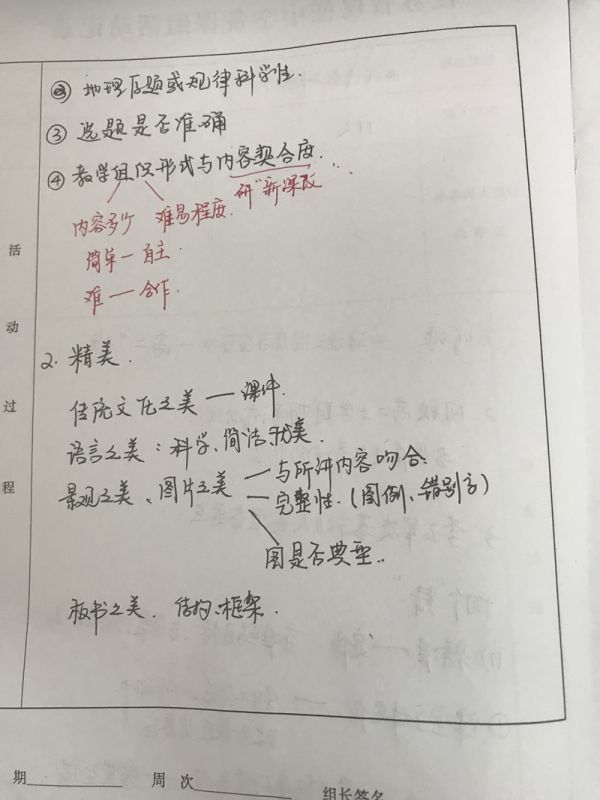 ② 地理原题或规律科学性.
③ 选题是否准确
④ 教学组织形式与内容契合度.
研"新课改
内容多少 难易程度.
简单一自主
难一合作.
活动过程
2. 精美.
传统文化之美一课件.
语言之美:科学、简洁、优美.
景观之美、图片之美一与所讲内容吻合.
一完整性.(图例、错别字)
图是否典型..
板书之美. 结构、框架.
期 周 次
组长签名